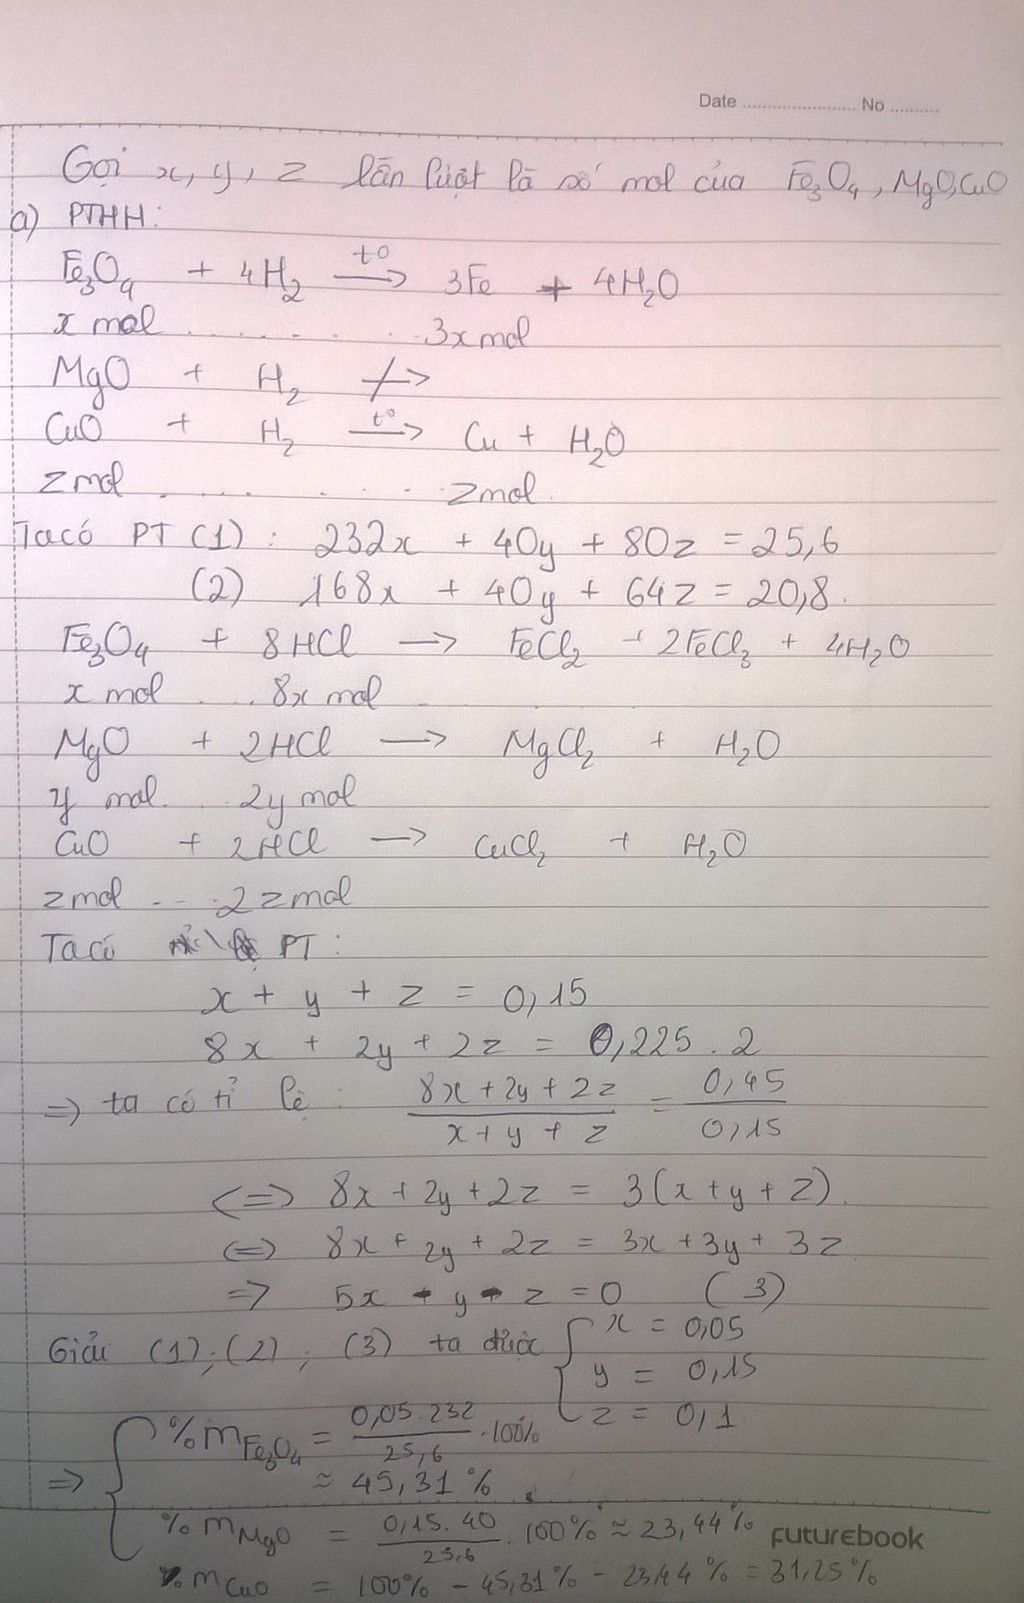 Date ........................ No ..........
Gọi x, y, z lần lượt là số mol của Fe₃O₄, MgO, CuO
a) PTHH:
Fe₃O₄ + 4H₂ –t°→ 3Fe + 4H₂O
x mol ............ 3x mol
MgO + H₂ -/->
CuO + H₂ –t°→ Cu + H₂O
z mol ............ z mol.
Ta có PT (1): 232x + 40y + 80z = 25,6
(2) 168x + 40y + 64z = 20,8.
Fe₃O₄ + 8HCl → FeCl₂ + 2FeCl₃ + 4H₂O
x mol .... 8x mol
MgO + 2HCl → MgCl₂ + H₂O
y mol .... 2y mol
CuO + 2HCl → CuCl₂ + H₂O
z mol .... 2z mol
Ta có PT:
x + y + z = 0,15
8x + 2y + 2z = 0,225 . 2
=> ta có tỉ lệ: (8x + 2y + 2z)/(x + y + z) = 0,45/0,15
<=> 8x + 2y + 2z = 3(x + y + z).
<=> 8x + 2y + 2z = 3x + 3y + 3z
=> 5x - y - z = 0 (3)
Giải (1); (2); (3) ta được { x = 0,05
y = 0,15
z = 0,1
=> { %mFe₃O₄ = (0,05.232)/25,6 . 100%
≈ 45,31%
%mMgO = (0,15.40)/25,6 . 100% ≈ 23,44%
futurebook
%mCuO = 100% - 45,31% - 23,44% = 31,25%